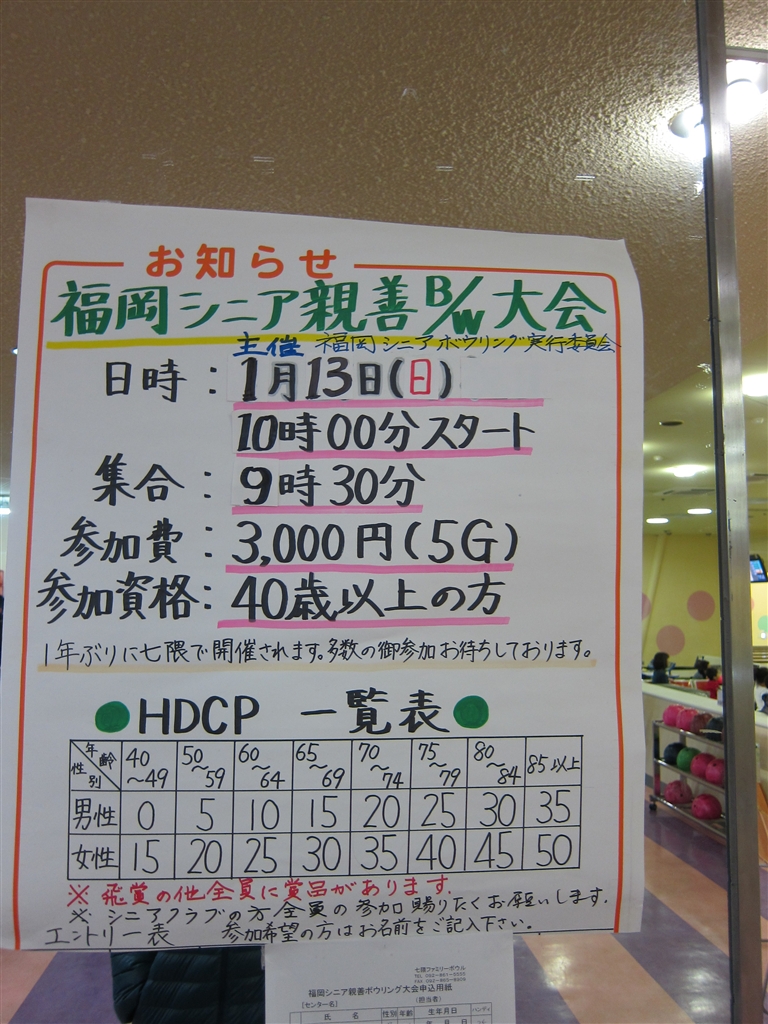 お知らせ
福岡シニア親善B/W大会
主催 福岡シニアボウリング実行委員会
日時：1月13日(日)
10時00分スタート
集合：9時30分
参加費：3,000円(5G)
参加資格：40歳以上の方
1年ぶりに七隈で開催されます。多数の御参加お待ちしております。
●HDCP 一覧表●
年齢 性別 40～49 50～59 60～64 65～69 70～74 75～79 80～84 85以上
男性 0 5 10 15 20 25 30 35
女性 15 20 25 30 35 40 45 50
※飛賞の他全員に賞品があります。
※シニアクラブの方全員の参加賜りたくお願いします。
エントリー表 参加希望の方はお名前をご記入下さい。
七隈ファミリーボウル
福岡シニア親善ボウリング大会申込用紙
[センター名] (担当者)
氏名 性別 年齢 生年月日 ハンディ
年 月 日